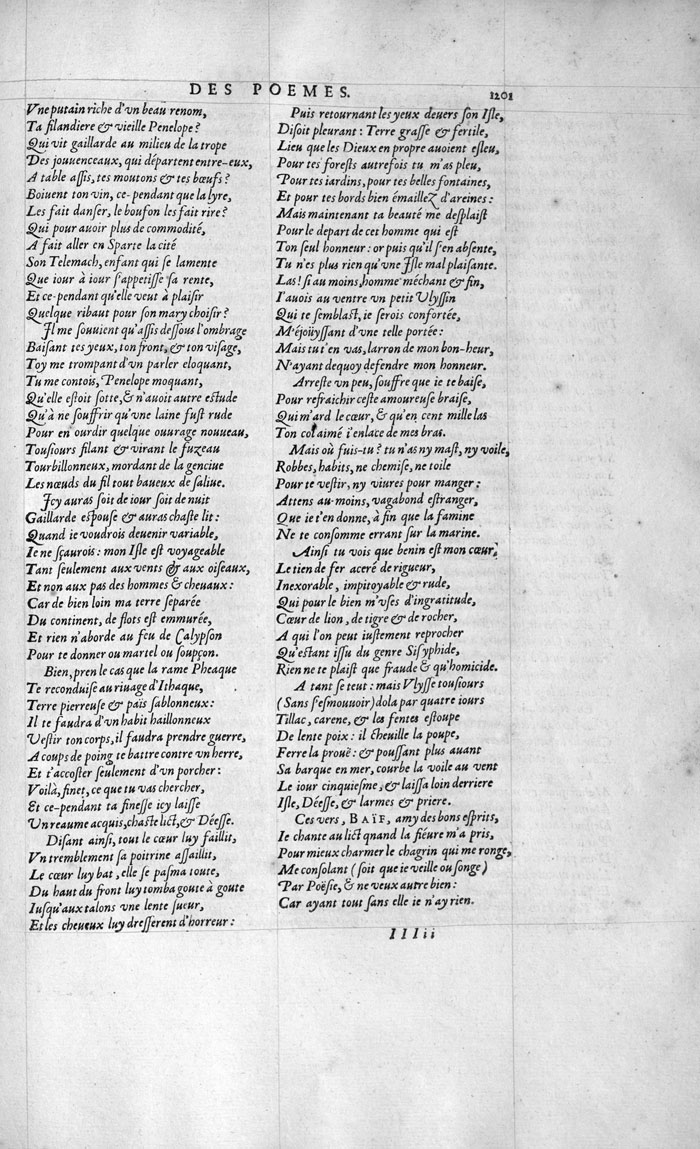 DES POEMES. 1201
Vne putain riche d'vn beau renom,
Ta filandiere & vieille Penelope?
Qui vit gaillarde au milieu de la trope
Des jouuenceaux, qui départent entre-eux,
A table aſsis, tes moutons & tes bœufs?
Boiuent ton vin, ce-pendant que la lyre,
Les fait danſer, le boufon les fait rire?
Qui pour auoir plus de commodité,
A fait aller en Sparte la cité
Son Telemach, enfant qui ſe lamente
Que iour à iour s'appetiſſe ſa rente,
Et ce-pendant qu'elle veut à plaiſir
Quelque ribaut pour ſon mary choiſir?
Il me ſouuient qu'aſsis deſſous l'ombrage
Baiſant tes yeux, ton front, & ton viſage,
Toy me trompant d'vn parler eloquant,
Tu me contois, Penelope moquant,
Qu'elle eſtoit ſotte, & n'auoit autre eſtude
Qu'à ne ſouffrir qu'vne laine fuſt rude
Pour en ourdir quelque ouurage nouueau,
Touſiours filant & virant le fuzeau
Tourbillonneux, mordant de la genciue
Les nœuds du fil tout baueux de ſaliue.
Icy auras ſoit de iour ſoit de nuit
Gaillarde eſpouſe & auras chaſte lit:
Quand ie voudrois deuenir variable,
Ie ne ſçaurois: mon Iſle eſt voyageable
Tant ſeulement aux vents & aux oiſeaux,
Et non aux pas des hommes & cheuaux:
Car de bien loin ma terre ſeparée
Du continent, de flots eſt emmurée,
Et rien n'aborde au feu de Calypſon
Pour te donner ou martel ou ſoupçon.
Bien, pren le cas que la rame Pheaque
Te reconduiſe au riuage d'Ithaque,
Terre pierreuſe & païs ſablonneux:
Il te faudra d'vn habit haillonneux
Veſtir ton corps, il faudra prendre guerre,
A coups de poing te battre contre vn herre,
Et t'accoſter ſeulement d'vn porcher:
Voilà, finet, ce que tu vas chercher,
Et ce-pendant ta fineſſe icy laiſſe
Vn reaume acquis, chaſte lict, & Déeſſe.
Diſant ainſi, tout le cœur luy faillit,
Vn tremblement ſa poitrine aſſaillit,
Le cœur luy bat, elle ſe paſma toute,
Du haut du front luy tomba goute à goute
Iuſqu'aux talons vne lente ſueur,
Et les cheueux luy dreſſerent d'horreur:
Puis retournant les yeux deuers ſon Iſle,
Diſoit pleurant: Terre graſſe & fertile,
Lieu que les Dieux en propre auoient eſleu,
Pour tes foreſts autrefois tu m'as pleu,
Pour tes iardins, pour tes belles fontaines,
Et pour tes bords bien émaillez d'areines:
Mais maintenant ta beauté me deſplaiſt
Pour le depart de cet homme qui eſt
Ton ſeul honneur: or puis qu'il s'en abſente,
Tu n'es plus rien qu'vne Iſle mal plaiſante.
Las! ſi au moins, homme méchant & fin,
I'auois au ventre vn petit Vlyſſin
Qui te ſemblaſt, ie ſerois confortée,
M'éjoüyſſant d'vne telle portée:
Mais tu t'en vas, larron de mon bon-heur,
N'ayant dequoy defendre mon honneur.
Arreſte vn peu, ſouffre que ie te baiſe,
Pour refraichir ceſte amoureuſe braiſe,
Qui m'ard le cœur, & qu'en cent mille las
Ton col aimé i'enlace de mes bras.
Mais où fuis-tu? tu n'as ny maſt, ny voile,
Robbes, habits, ne chemiſe, ne toile
Pour te veſtir, ny viures pour manger:
Attens au-moins, vagabond eſtranger,
Que ie t'en donne, à fin que la famine
Ne te conſomme errant ſur la marine.
Ainſi tu vois que benin eſt mon cœur,
Le tien de fer aceré de rigueur,
Inexorable, impitoyable & rude,
Qui pour le bien m'vſes d'ingratitude,
Cœur de lion, de tigre & de rocher,
A qui l'on peut iuſtement reprocher
Qu'eſtant iſſu du genre Siſyphide,
Rien ne te plaiſt que fraude & qu'homicide.
A tant ſe teut: mais Vlyſſe touſiours
(Sans s'eſmouuoir) dola par quatre iours
Tillac, carene, & les fentes eſtoupe
De lente poix: il cheuille la poupe,
Ferre la prouë: & pouſſant plus auant
Sa barque en mer, courbe la voile au vent
Le iour cinquieſme, & laiſſa loin derriere
Iſle, Déeſſe, & larmes & priere.
Ces vers, BAÏF, amy des bons eſprits,
Ie chante au lict qnand la fiéure m'a pris,
Pour mieux charmer le chagrin qui me ronge,
Me conſolant (ſoit que ie veille ou ſonge)
Par Poëſie, & ne veux autre bien:
Car ayant tout ſans elle ie n'ay rien.
IIIii